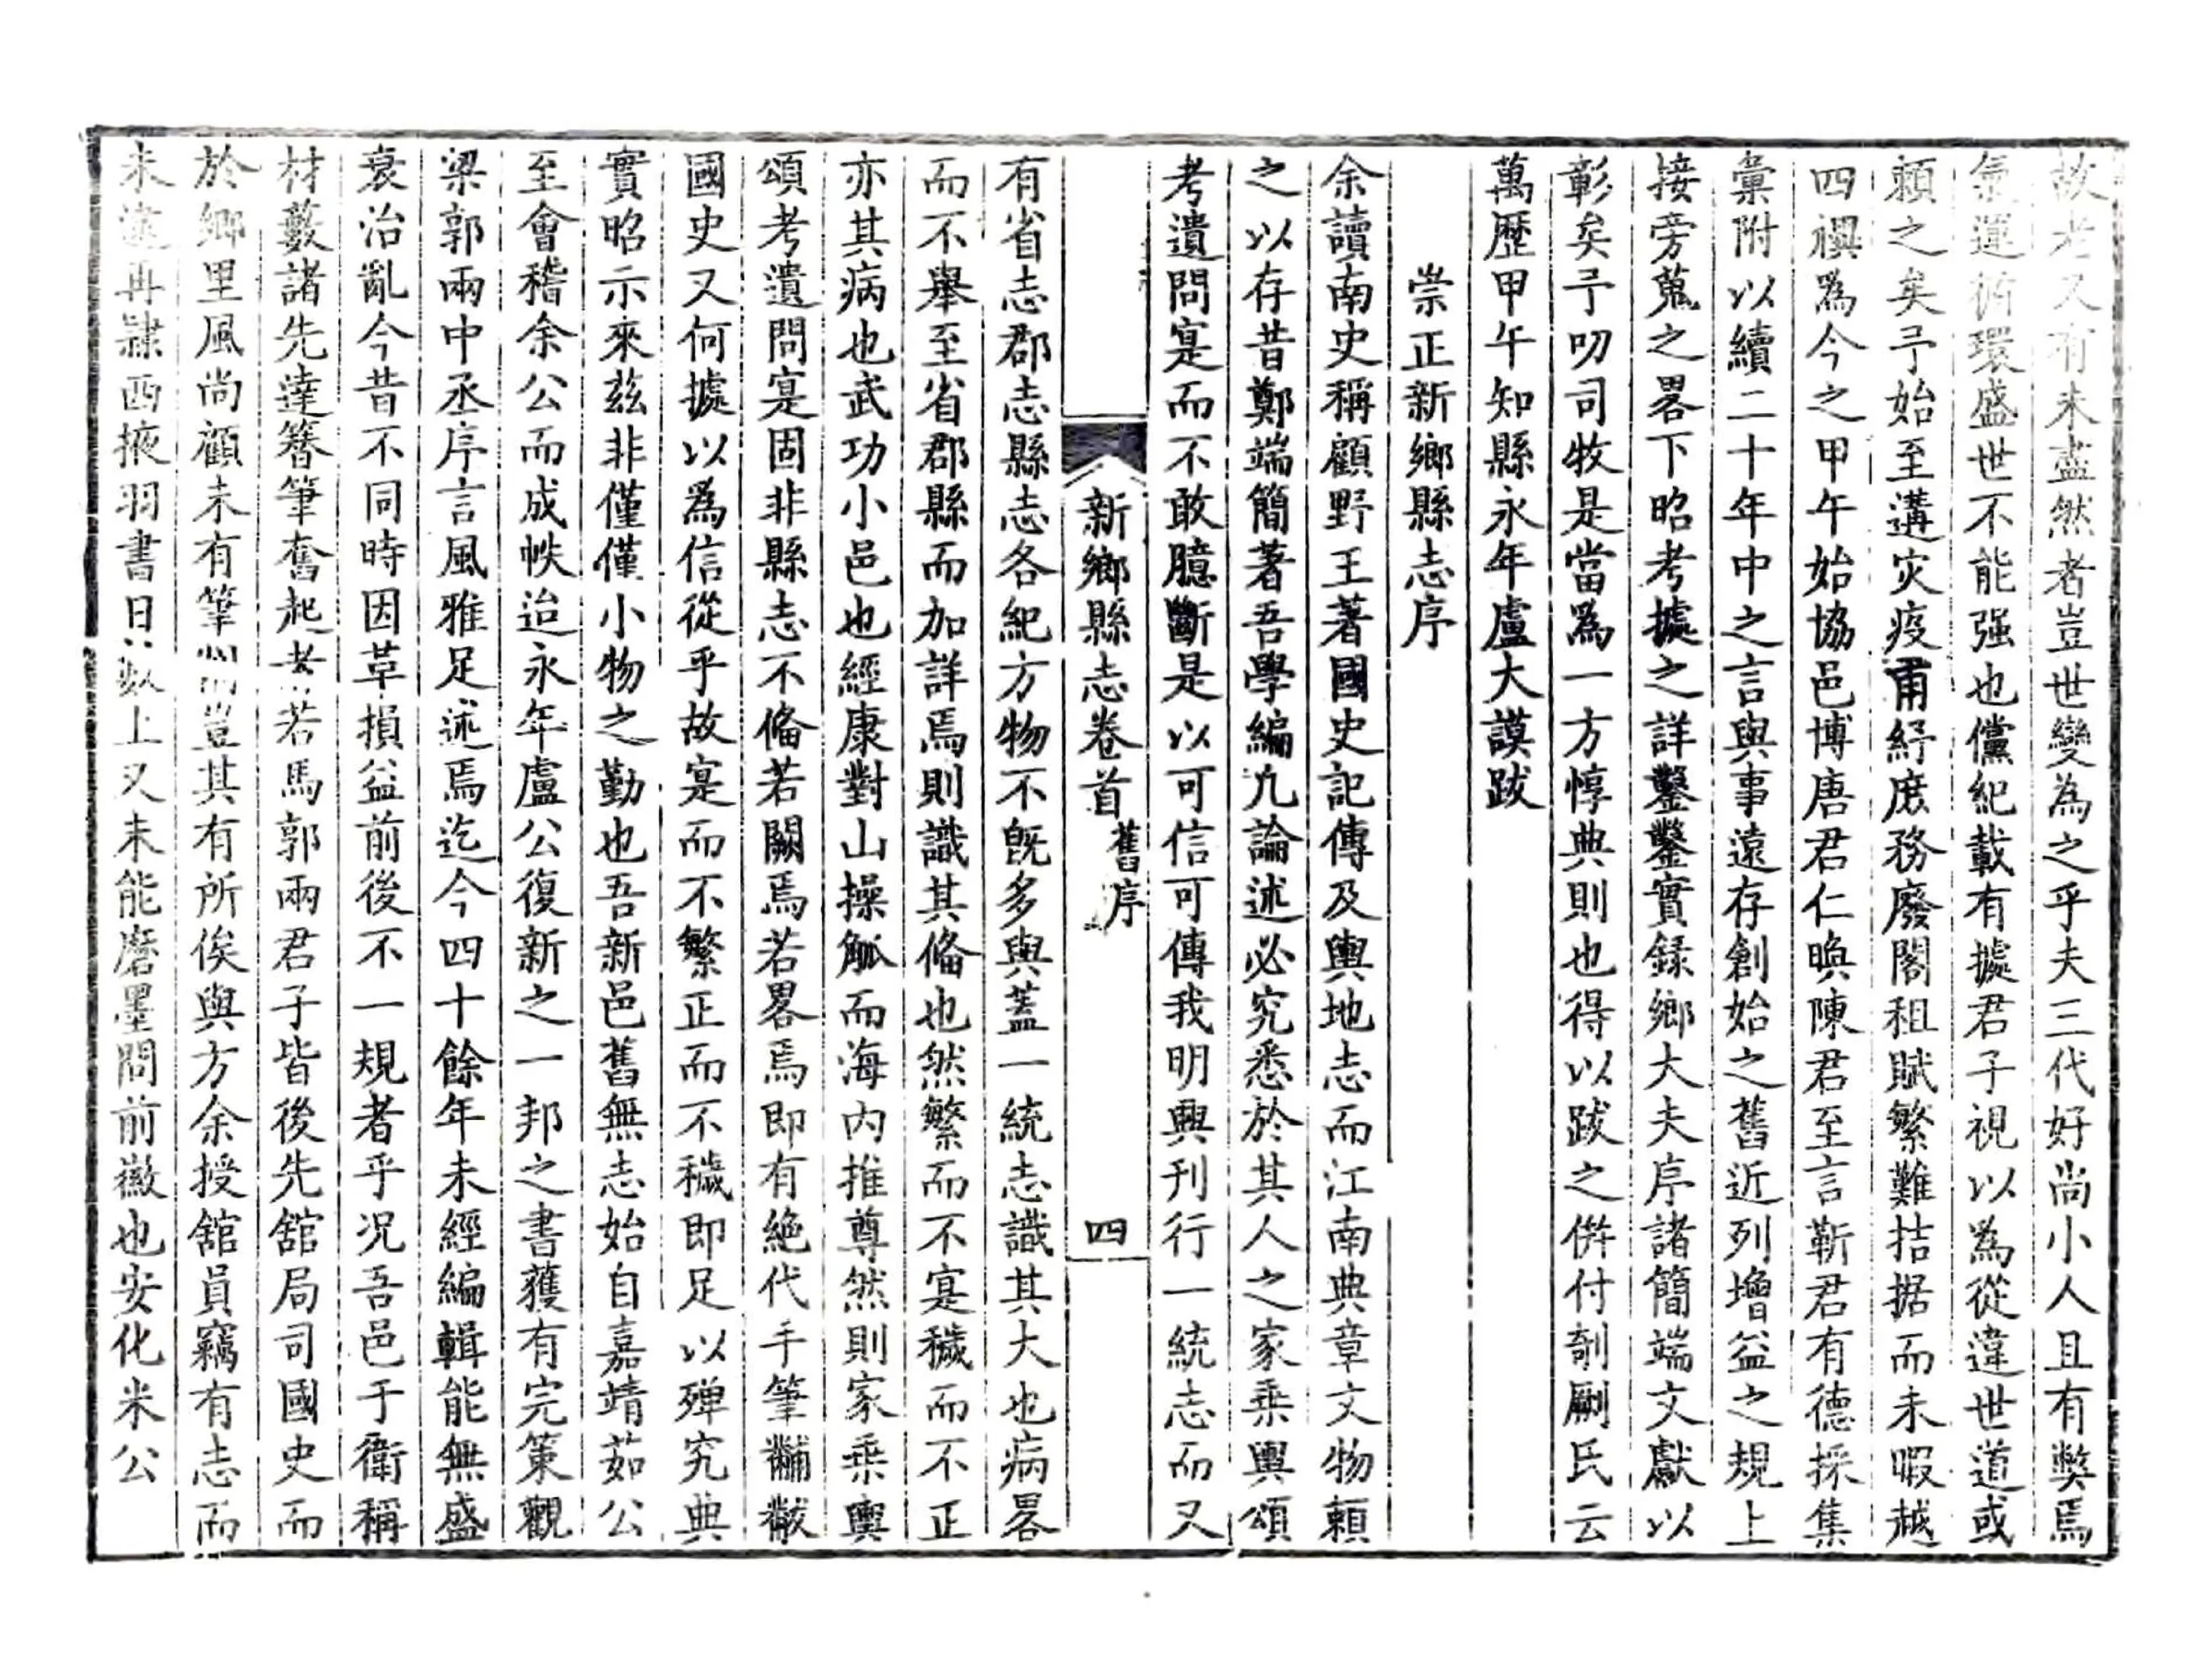 故老又有未盡然者豈世變為之乎夫三代好尚小人且有獘焉
氣運循環盛世不能强也儻紀載有據君子視以為從違世道或
頼之矣予始至遘灾疫甫紓庶務廢閣租賦繁難拮据而未暇越
四禩爲今之甲午始協邑博唐君仁喚陳君至言靳君有德採集
彙附以續二十年中之言與事遠存創始之舊近列增益之規上
接旁蒐之畧下昭考據之詳鑿鑿實録鄉大夫序諸簡端文獻以
彰矣予叨司牧是當爲一方惇典則也得以跋之併付剞劂氏云
萬歷甲午知縣永年盧大謨跋
崇正新鄉縣志序
余讀南史稱顧野王著國史記傳及輿地志而江南典章文物頼
之以存昔鄭端簡著吾學編凢論述必究悉於其人之家乗輿頌
考遺問寔而不敢臆斷是以可信可傳我明興刊行一統志而又
新鄉縣志卷首 舊序 四
有省志郡志縣志各紀方物不旣多與蓋一統志識其大也病畧
而不舉至省郡縣而加詳焉則識其俻也然繁而不寔穢而不正
亦其病也武功小邑也經康對山操觚而海内推尊然則家乗輿
頌考遺問寔固非縣志不俻若闕焉若畧焉即有絶代手筆黼黻
國史又何據以爲信從乎故寔而不繁正而不穢即足以殫究典
實昭示來兹非僅僅小物之勤也吾新邑舊無志始自嘉靖茹公
至會稽余公而成帙迨永年盧公復新之一邦之書獲有完策觀
梁郭兩中丞序言風雅足述焉迄今四十餘年未經編輯能無盛
衰治亂今昔不同時因革損益前後不一規者乎况吾邑于衛稱
材藪諸先達簪筆奮起者若馬郭兩君子皆後先舘局司國史而
於鄉里風尚顧未有筆削豈其有所俟與方余授舘員竊有志而
未遑再隸西掖羽書日數上又未能磨墨問前徽也安化米公